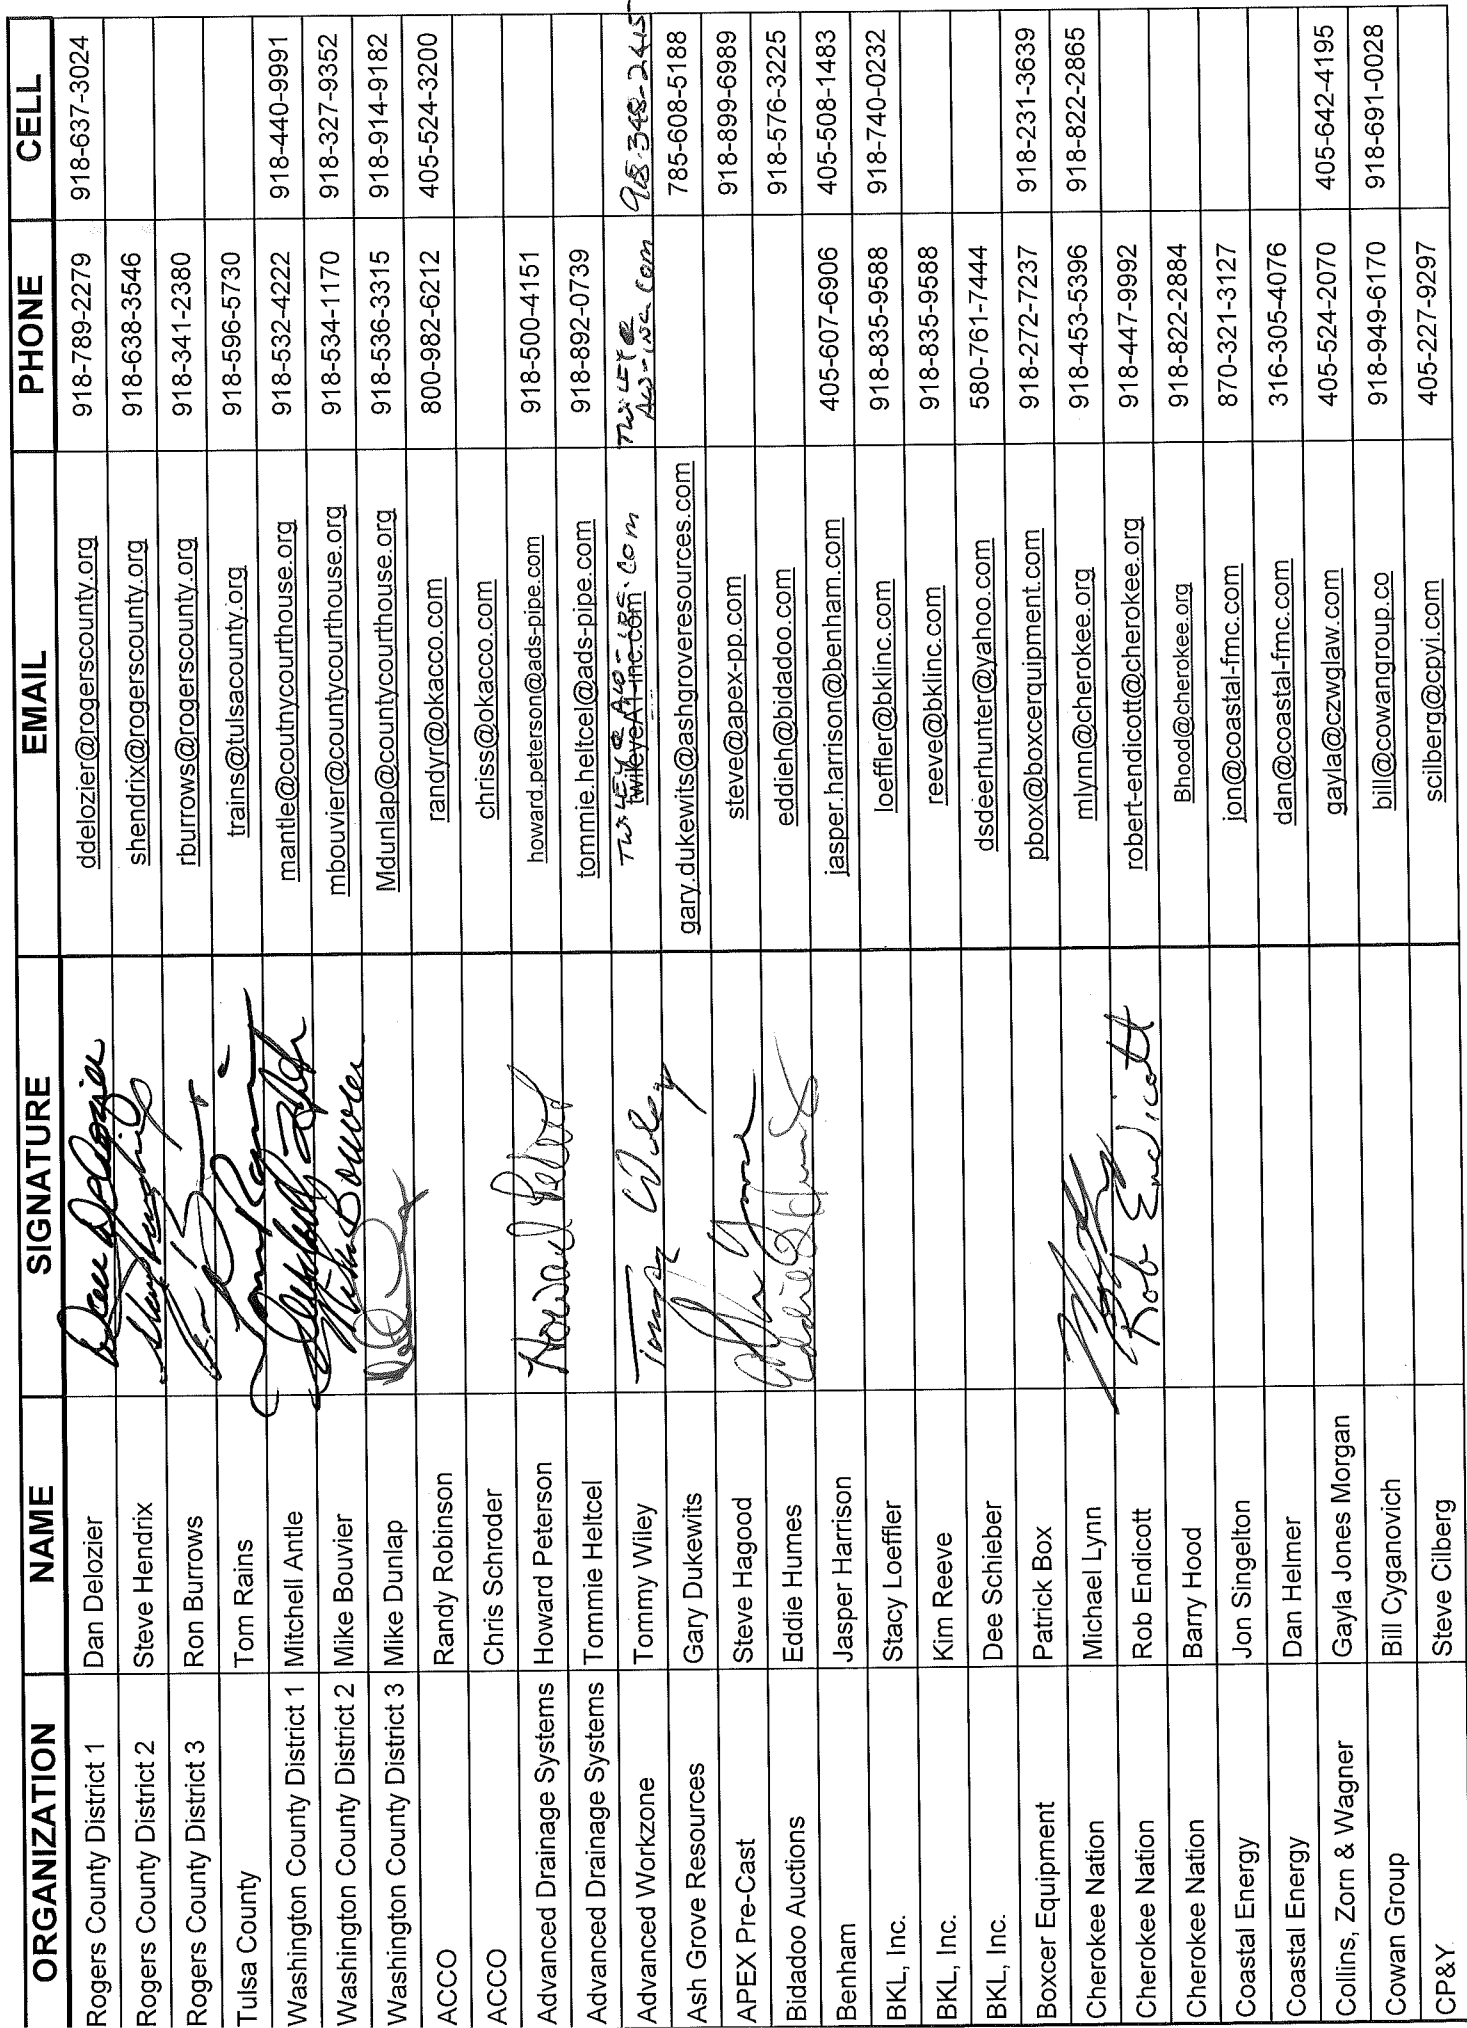 ORGANIZATION NAME SIGNATURE EMAIL PHONE CELL
Rogers County District 1 Dan Delozier Dan Delozier ddelozier@rogerscounty.org 918-789-2279 918-637-3024
Rogers County District 2 Steve Hendrix shendrix@rogerscounty.org 918-638-3546
Rogers County District 3 Ron Burrows rburrows@rogerscounty.org 918-341-2380
Tulsa County Tom Rains trains@tulsacounty.org 918-596-5730
Washington County District 1 Mitchell Antle mantle@coutnycourthouse.org 918-532-4222 918-440-9991
Washington County District 2 Mike Bouvier Mike Bouvier mbouvier@countycourthouse.org 918-534-1170 918-327-9352
Washington County District 3 Mike Dunlap Mdunlap@countycourthouse.org 918-536-3315 918-914-9182
ACCO Randy Robinson randyr@okacco.com 800-982-6212 405-524-3200
ACCO Chris Schroder chriss@okacco.com
Advanced Drainage Systems Howard Peterson Howard Peterson howard.peterson@ads-pipe.com 918-500-4151
Advanced Drainage Systems Tommie Heltcel tommie.heltcel@ads-pipe.com 918-892-0739
Advanced Workzone Tommy Wiley Tommy Wiley 918-348-2415
Ash Grove Resources Gary Dukewits gary.dukewits@ashgroveresources.com 785-608-5188
APEX Pre-Cast Steve Hagood steve@apex-pp.com 918-899-6989
Bidadoo Auctions Eddie Humes Eddie Humes eddieh@bidadoo.com 918-576-3225
Benham Jasper Harrison jasper.harrison@benham.com 405-607-6906 405-508-1483
BKL, Inc. Stacy Loeffler loeffler@bklinc.com 918-835-9588 918-740-0232
BKL, Inc. Kim Reeve reeve@bklinc.com 918-835-9588
BKL, Inc. Dee Schieber dsdeerhunter@yahoo.com 580-761-7444
Boxcer Equipment Patrick Box pbox@boxcerquipment.com 918-272-7237 918-231-3639
Cherokee Nation Michael Lynn mlynn@cherokee.org 918-453-5396 918-822-2865
Cherokee Nation Rob Endicott Rob Endicott robert-endicott@cherokee.org 918-447-9992
Cherokee Nation Barry Hood Bhood@cherokee.org 918-822-2884
Coastal Energy Jon Singelton jon@coastal-fmc.com 870-321-3127
Coastal Energy Dan Helmer dan@coastal-fmc.com 316-305-4076
Collins, Zorn & Wagner Gayla Jones Morgan gayla@czwglaw.com 405-524-2070 405-642-4195
Cowan Group Bill Cyganovich bill@cowangroup.co 918-949-6170 918-691-0028
CP&Y Steve Cilberg scilberg@cpyi.com 405-227-9297